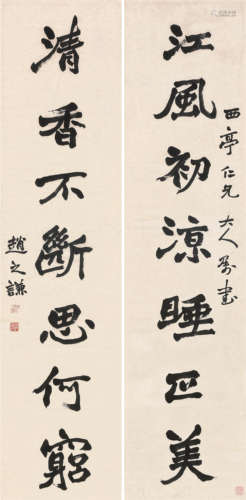 江風初涼睡正美
西亭仁兄大人屬書
清香不斷思何窮
趙之謙